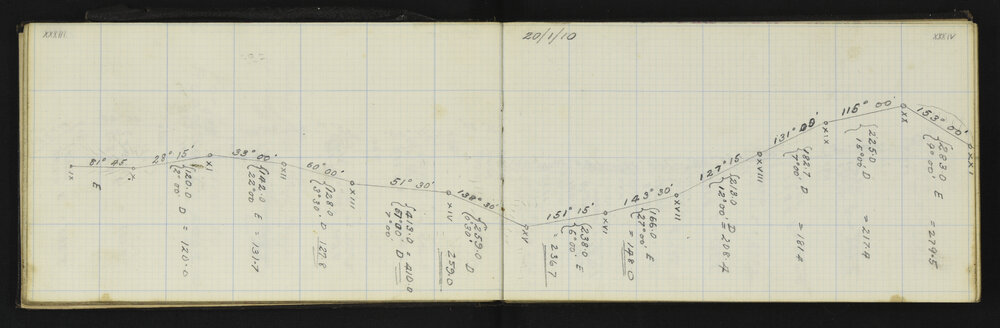 XXXIII
20/1/10
XXXIV
IX
81° 45'
E
X
28° 15'
XI
{120.0 D = 120.0
2° 00'
33° 00'
XII
{142.0 E = 131.7
22° 00'
60° 00'
XIII
{128.0 D 127.8
3° 30'
51° 30'
XIV
{413.0 = 410.0
7° 00' D
138° 30'
XV
{259.0 D 259.0
0° 30'
151° 15'
XVI
{238.0 E = 236.7
6° 00'
143° 30'
XVII
{166.0 E = 148.0
27° 00'
127° 15
XVIII
{213.0 D = 208.4
12° 00'
131° 00'
XIX
{182.7 D = 181.4
7° 00'
115° 00'
XX
{225.0 D = 217.4
15° 00'
153° 00'
XXI
{283.0 E = 279.5
9° 00'